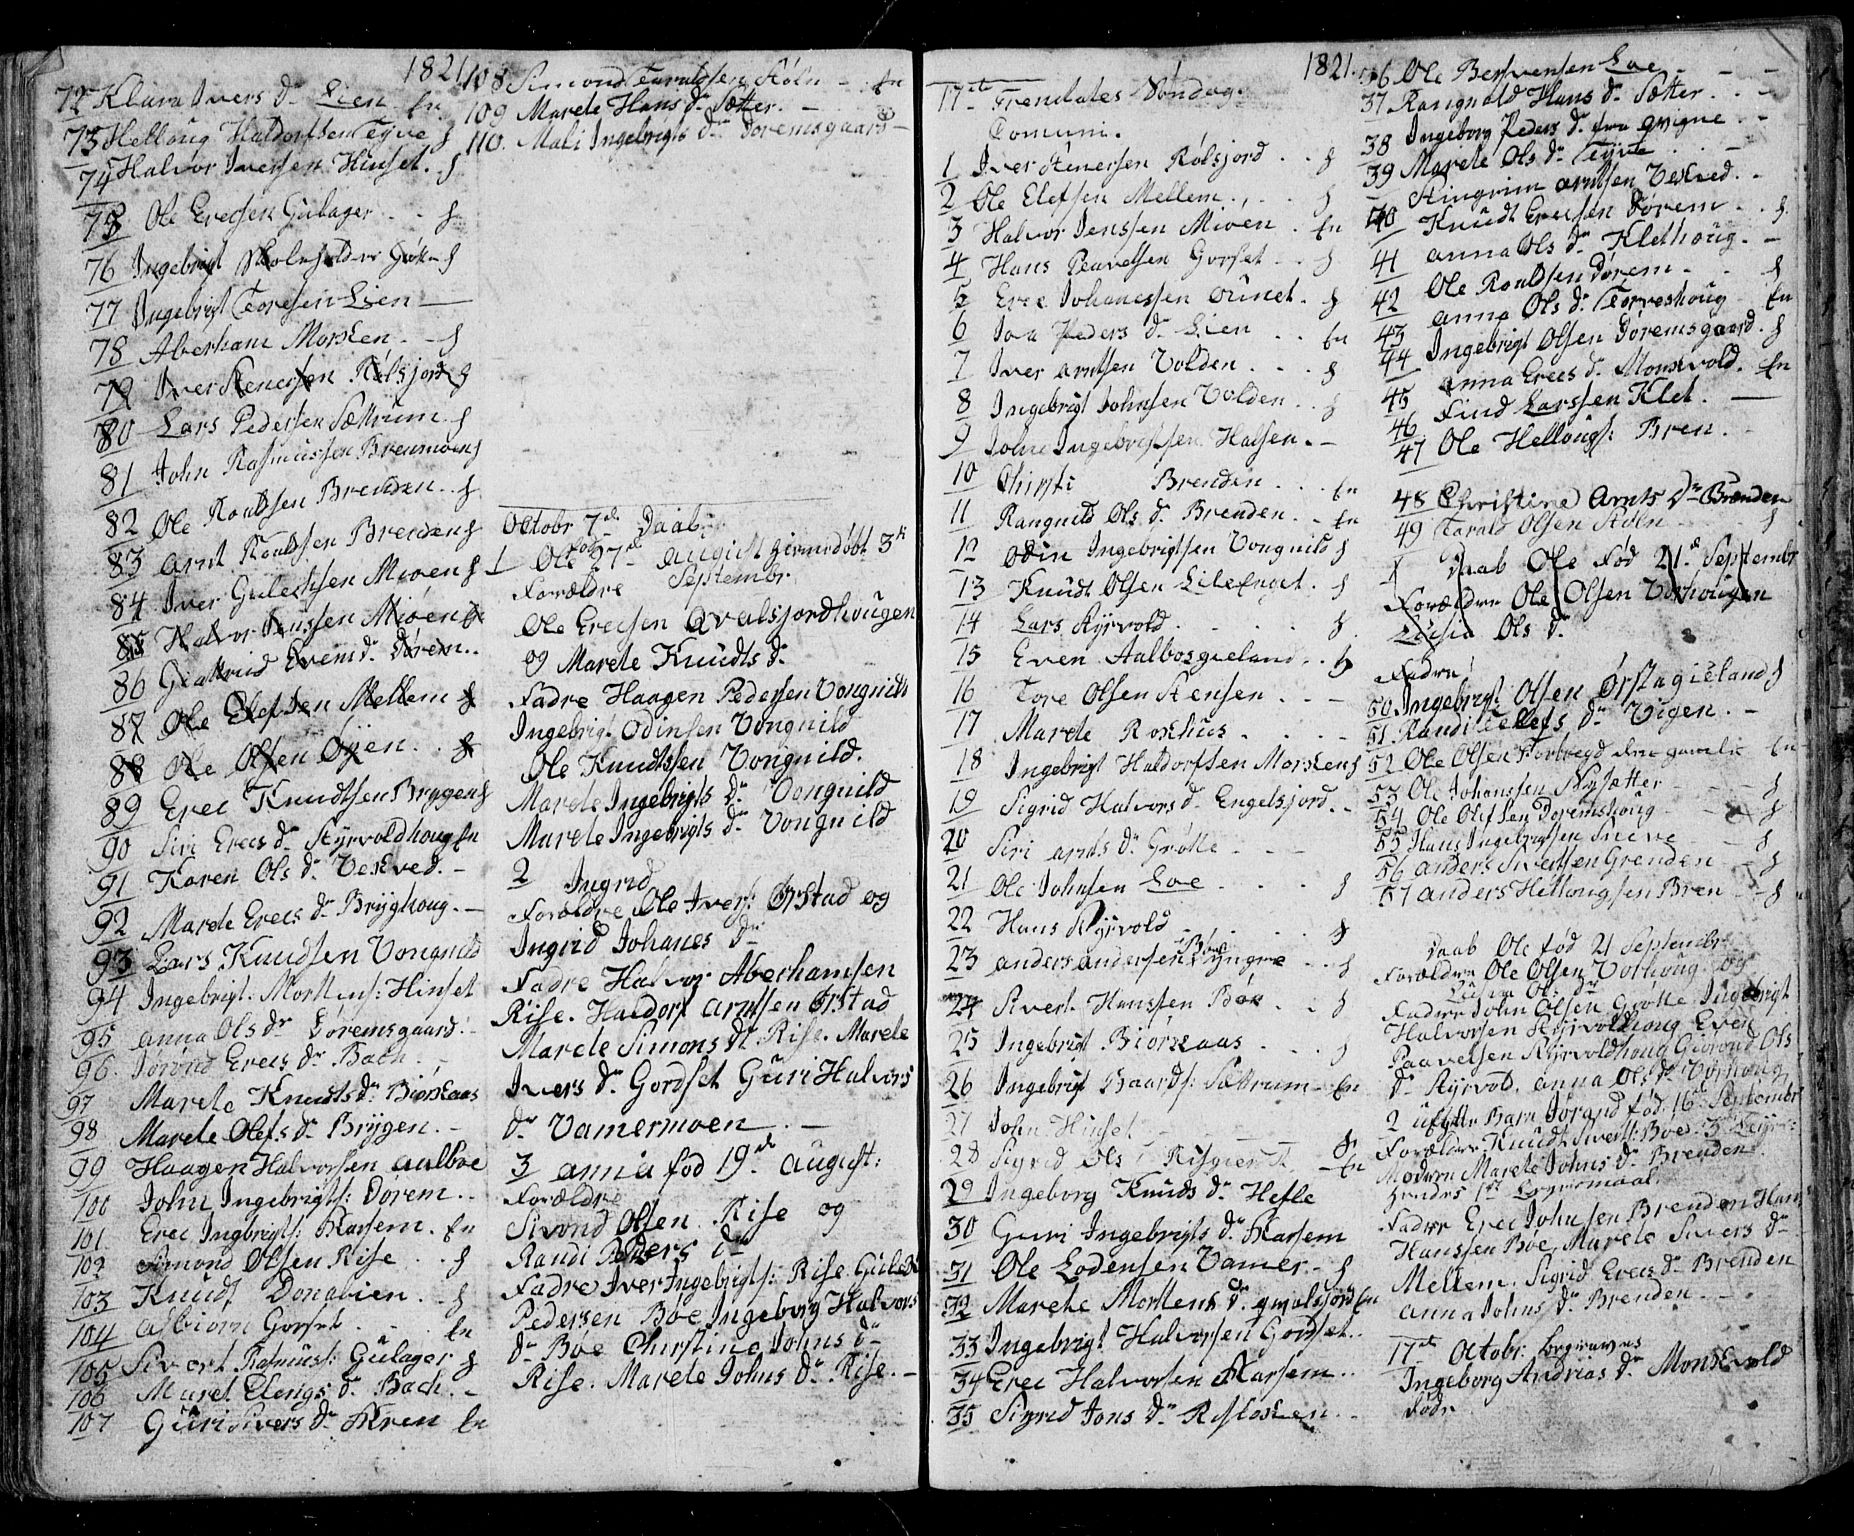 1821
72 Klara Ivers Dr Lien En
73 Helloug Haldorssen Teyve
74 Halvor Iversen Hinset
75 Ole Ericsen Gulager
76 Ingebrigt Skoleholder
77 Ingebrigt Toresen Lien
78 Aberham Morsken
79 Iver Stenersen Rølsjord
80 Lars Pedersen Sættrum
81 John Rasmussen
82 Ole Roaldsen Brenden
83 Arnt Roaldsen Brenden
84 Iver Gulechsen Mioen
85 Halvor Jenssen Mioen
86 Evens Dr Dørem
87 Ole Elefsen Mellem
88 Ole Olsen Øyen
89 Erec Knudtsen Brygen
90 Siri Erecs Dr Styrvoldhoug En
91 Karen Ols Dr Veskved
92 Marete Erecs Dr Bryghoug
93 Lars Knudsen Vongnild
94 Ingebrigt Mortens: Hinset
95 Anna Ols Dr Døremsgaard
96 Jørond Erecs Dr Bach
97 Marete Knudts Dr Biørkaas
98 Marete Olefs Dr Brygen
99 Haagen Halvorsen Aalboe
100 John Ingebrigts: Dørem
101 Erec Ingbrigts: Karsem En
102 Simond Olsen Rise
103 Knudt Donabien
104 Asbiørn Gorset En
105 Sivert Rasmus: Gulager
106 Maret Elengs Dr Bach
107 Guri Sivers Dr Kren En
108 Simond Taraldsen Støln En
109 Marete Hans Dr Sætter
110 Mali Ingebrigts Dr Døremsgaard
Octobr 7de Daab
1 Ole 27de August hiemdøbt 3de
Forældre Septembr
Ole Erecsen Qvalsjordhougen
og Marete Knudts Dr
Fadre Haagen Pedersen Vongnild
Ingebrigt Odinsen Vongnild
Ole Knudtssen Vongnild.
Marete Ingebrigts Dr Vongnild
Marete Ingebrigts Dr Vongnild
2 Ingrid
Forældre Ole Ivers: Ørstad og
Ingrid Johanes Dr
Fadre Halvor Aberhamsen
Rise. Haldors Arntsen Ørstad
Marete Simons Dr Rise. Marete
Ivers Dr Gordset Guri Halvors
Dr Vamermoen
3 Annia fød 19de August:
Forældre
Sivond Olsen Rise og
Randi Peders Dr
Fadre Iver Ingebrigts: Rise
Pedersen Bøe Ingeborg Halvors
Dr Bøe Christine Johns Dr
Rise. Marete Johns Dr Rise.
1821.
17te Trendates Søndag.
Comuni.
1 Iver Stenersen Rølsjord
2 Ole Elefsen Mellem
3 Halvor Jenssen Mioen En
4 Hans Paavelsen Gorset
5 Erec Johanessen Ounet
6 Peders Dr Lien En
7 Iver Arntsen Volden
8 Ingebrigt Johnsen Volden
9 John Ingebrigtsen Halsen
10 Chirsti Brenden En
11 Rangnild Ols Dr Brenden En
12 Odin Ingebrigtsen Vongnild
13 Knudt Olsen Lilefenget
14 Lars Ryrvold
15 Even Aalbosgieland
16 Tore Olsen Stensen
17 Marete Roshus
18 Ingebrigt Haldorssen Morsken
19 Sigrid Halvors Dr Engelsjord
20 Siri Arnts Dr Grøtte
21 Ole Johnsen Loe
22 Hans Ryrvold
23 Anders Andersen Bøe
24 Sivert Hanssen Bøe
25 Ingebrigt Biørkaas
26 Ingebrigt Baards: Sættrum En
27 John Hinset
28 Sigrid Ols En
29 Ingeborg Knuds Dr Hefle
30 Guri Ingebrigts Dr Karsem
31 Ole Lodensen Vamer
32 Marete Mortens Dr Qvalsjord En
33 Ingebrigt Halvorsen Gorset
34 Erec Halvorsen Karsem
35 Sigrid Jons Dr
36 Ole Loe
37 Rangnild Hans Dr Sætter
38 Ingeborg Peders Dr fra Qvigne
39 Marete Ols Dr Teyve
Stingrim Arntsen Veskved
40 Knudt Erecsen Dørem
41 Anna Ols Dr Klethoug
42 Ole Roaldsen Dørem
43 Anna Ols Dr Torveshoug En
44 Ingebrigt Olsen Døremsgaard
45 Anna Erecs Dr Monsvold En
46 Find Larssen Klet
47 Ole Hellougs: Bren
48 Christine Arnts Dr Brenden
49 Tarald Olsen Støln
1 Daab Ole Fød 21de Septembr
Forældre Ole Olsen Vorhougen
Ols Dr
Fadre
50 Ingebrigt Olsen Ørstagieland
51 Randi Ellefs Dr Vigen
52 Ole Olsen Forbregd den gamle En
53 Ole Johanssen Nysætter
54 Ole Olefsen Døremshoug
55 Hans Ingebrigtsen
56 Anders Grenden
57 Anders Hellougsen Bren
Daab Ole fød 21 Septembr
Forældre Ole Olsen Vorhoug og
Ols Dr
Fadre John Olsen Grøtte Ingebrigt
Halvorsen Styrvoldhoug Even
Paavelsen Styrvoldhoug Ols
Dr Styrvol. Anna Ols Dr Vorhoug
2 uægte Barn Jørand fød 16de Septembr
Forældre Knudt Siverts: Bøe
Moderen Marete Johns Dr Brenden
hendes 1ste Leyermaal
Fadre Erec Johnsen Brenden Hans
Hanssen Bøe, Marete Sivers Dr
Mellem. Sigrid Erecs Dr Brenden
Anna Johns Dr Brenden
17de Octobr: begraves
Ingeborg Andrias Dr Monsvold